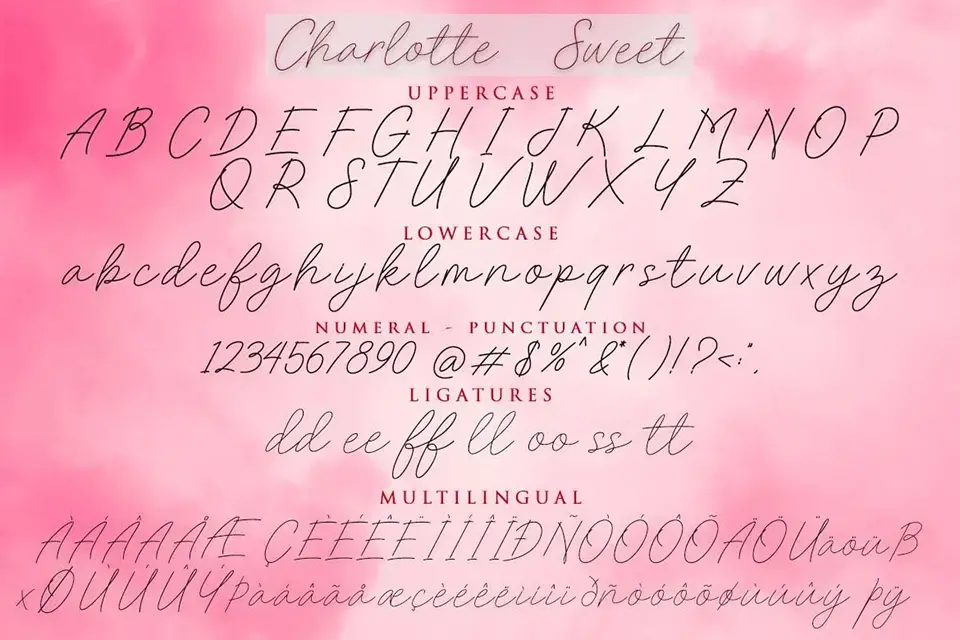 Charlotte Sweet
UPPERCASE
A B C D E F G H I J K L M N O P
Q R S T U V W X Y Z
LOWERCASE
a b c d e f g h i j k l m n o p q r s t u v w x y z
NUMERAL - PUNCTUATION
1234567890 @#$%^&*()!?<:".
LIGATURES
dd ee ff ll oo ss tt
MULTILINGUAL
ÀÁÂÃÄÅÆ ÇÈÉÊËÌÍÎÏÐÑÒÓÔÕÄÖÜäöüß
×ØÙÚÛÜÝÞàáâãäåæçèéêëìíîïðñòóôõøùúûý þÿ